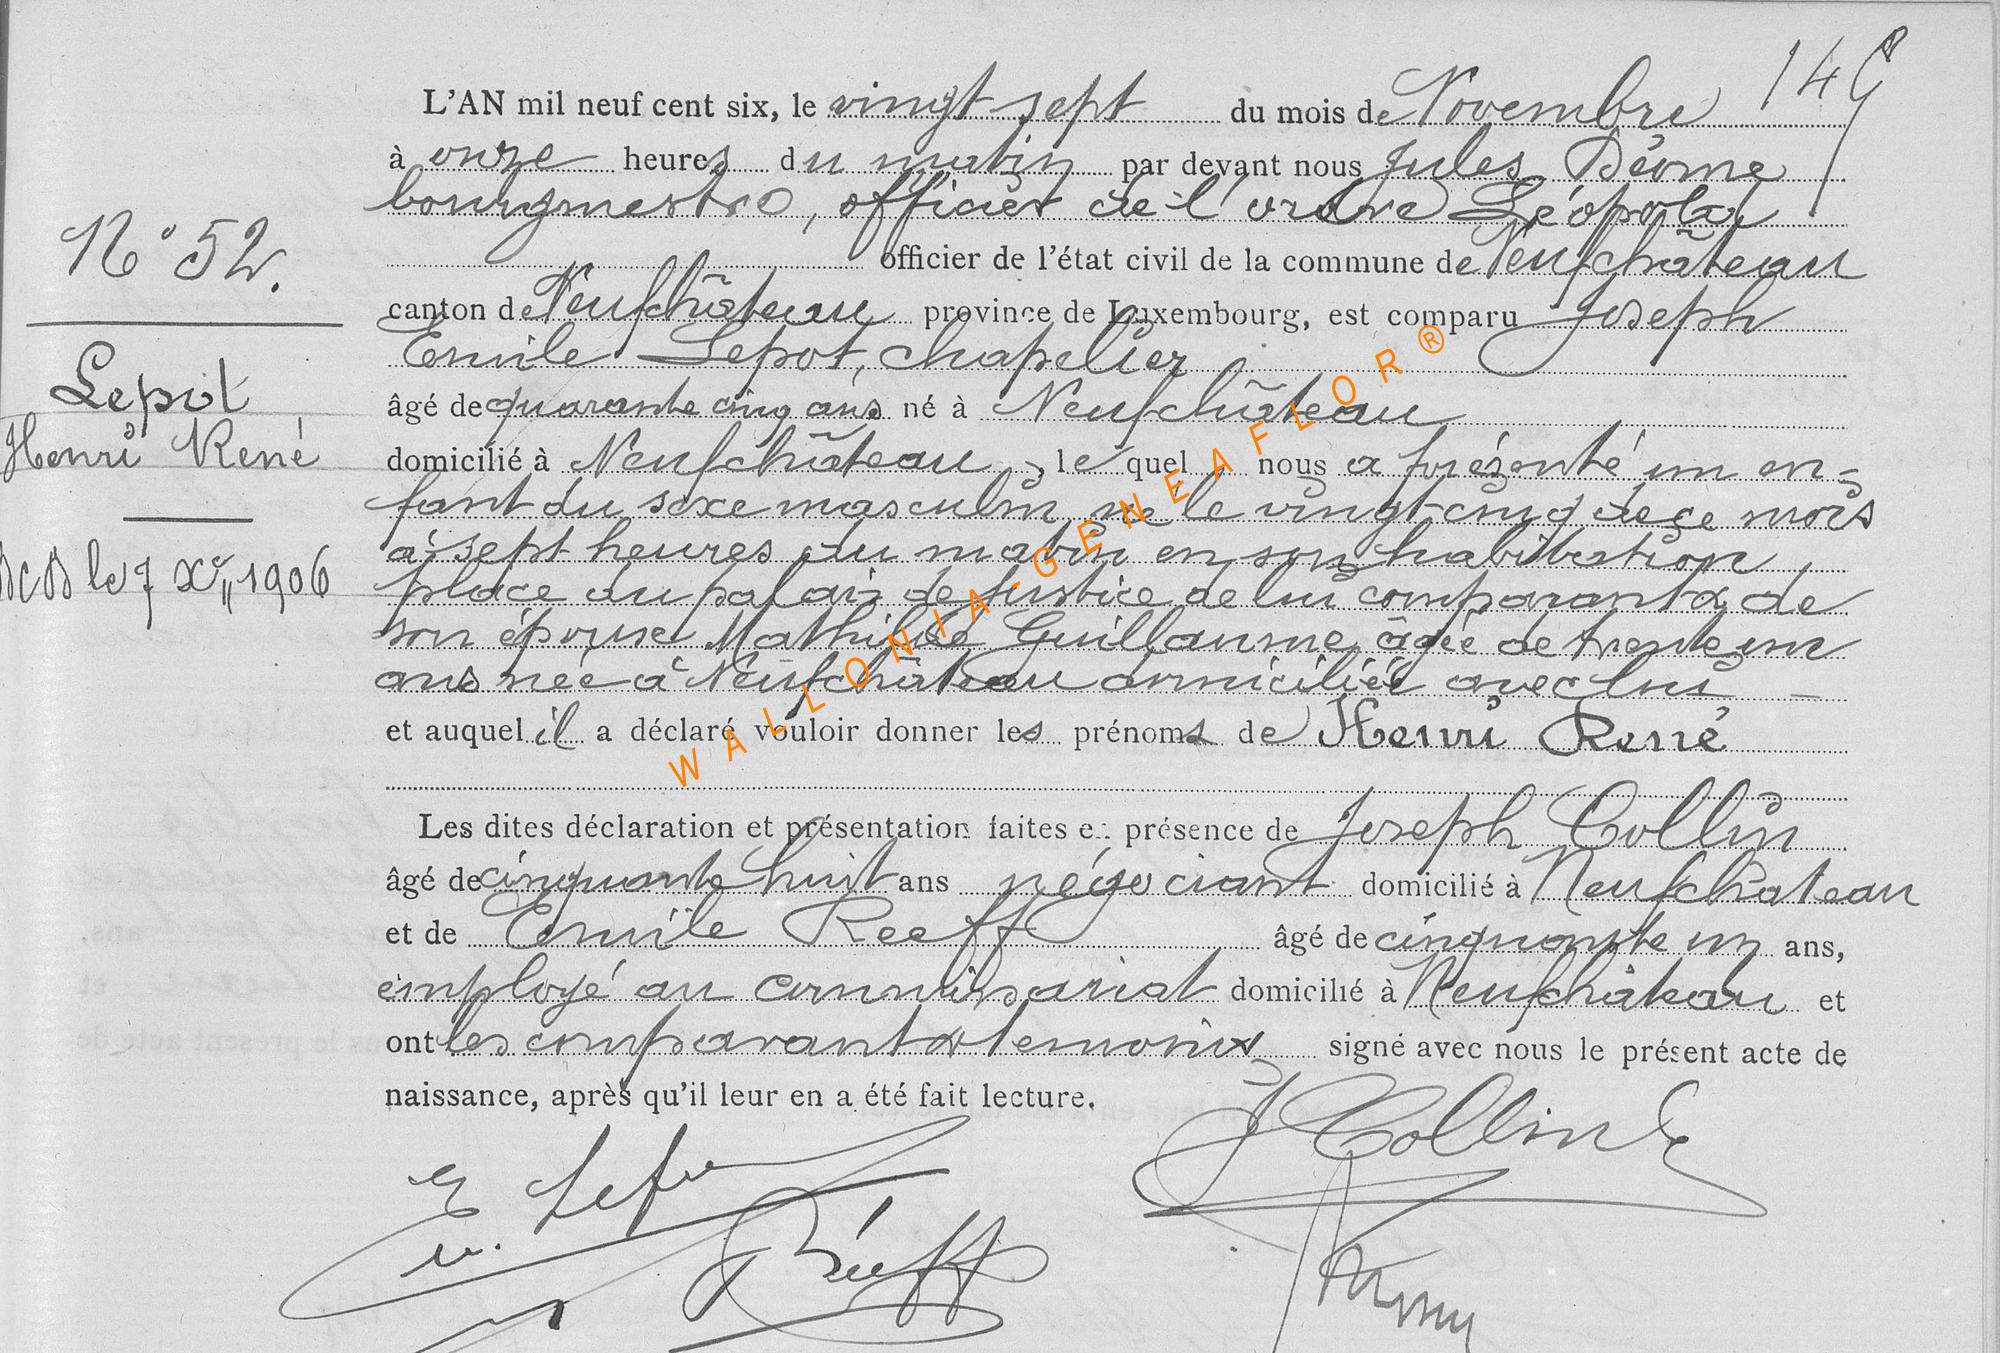 149
L'AN mil neuf cent six, le vingt sept du mois de Novembre
à onze heures du matin par devant nous Jules
bourgmestre, officier de l'ordre Léopold
officier de l'état civil de la commune de Neufchâteau
canton de Neufchâteau province de Luxembourg, est comparu Joseph
Emile Lepot, chapelier
âgé de quarante cinq ans né à Neufchâteau
domicilié à Neufchâteau, le quel nous a présenté un en-
fant du sexe masculin, né le vingt-cinq de ce mois
à sept heures du matin en son habitation,
place du palais de Justice de lui comparant & de
son épouse Mathilde Guillaume, âgée de trente un
ans née à Neufchâteau domiciliée avec lui
et auquel il a déclaré vouloir donner les prénoms de Henri René
Les dites déclaration et présentation faites en présence de Joseph Collin
âgé de cinquante huit ans négociant domicilié à Neufchateau
et de Emile Reeff âgé de cinquante un ans,
employé au commissariat domicilié à Neufchâteau et
ont les comparant & temoins signé avec nous le présent acte de
naissance, après qu'il leur en a été fait lecture.
N° 52.
Lepot
Henri René
le 7 Xbre 1906
J Collin
Réeff
WALLONIA-GENEAFLOR®